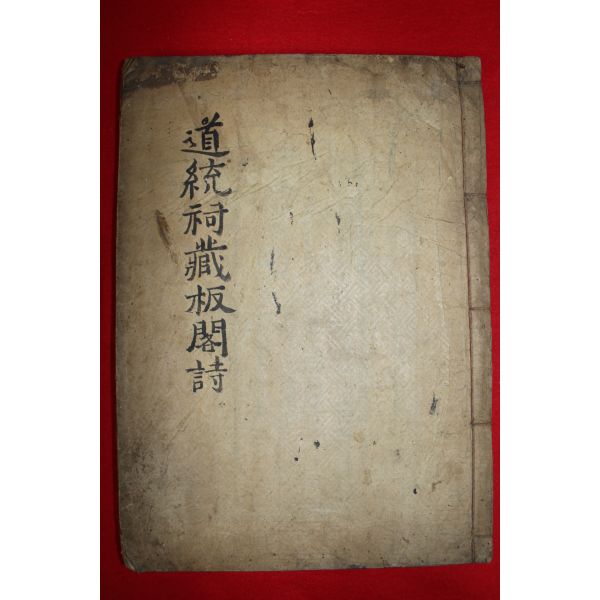 道統祠藏板閣詩